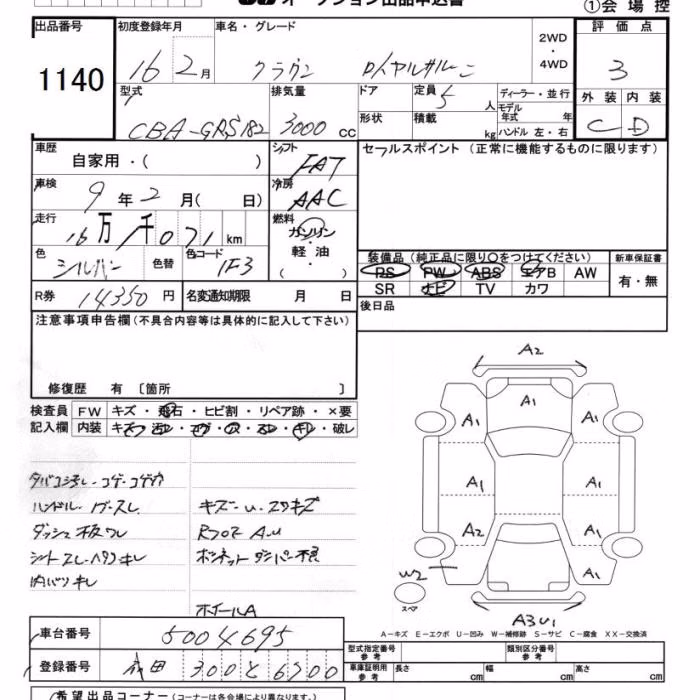 オークション出品申込書
①会場控
出品番号 1140
初度登録年月 16 2月
車名・グレード クラウン ロイヤルサルーン
2WD・4WD
評価点 3
外装 C 内装 D
型式 CBA-GRS182
排気量 3000 CC
ドア
形状
定員 5人
積載 kg
ディーラー・並行
モデル年式 年
ハンドル 左・右
車歴 自家用・( )
シフト FAT
セールスポイント(正常に機能するものに限ります)
車検 9年2月( 日)
冷房 AAC
走行 16万1千071km
燃料 ガソリン・軽油・( )
色 シルバー 色替 色コード 1F3
装備品(純正品に限り○をつけてください)
新車保証書
PS PW ABS エアB AW
SR ナビ TV カワ
有・無
R券 14350円 名変通知期限 月 日
後日品
注意事項申告欄(不具合内容等は具体的に記入して下さい)
修復歴 有〔箇所 〕
検査員記入欄
FW キズ・飛石・ヒビ割・リペア跡・×要
内装 ・破レ
ハンドル
ダッシュ
キズ・U・スリキズ
ホイールA
A2
A1
A1 A1
A1 A1
A2 A1
A1
W2
スペア
A3U1
A-キズ E-エクボ U-凹み W-補修跡 S-サビ C-腐食 XX-交換済
車台番号 5004695
登録番号 成田 300 と 6700
型式指定番号 参考
類別区分番号 参考
車庫証明用 参考 長さ cm 幅 cm 高さ cm
希望出品コーナー(コーナー名は各会場により異なります。)